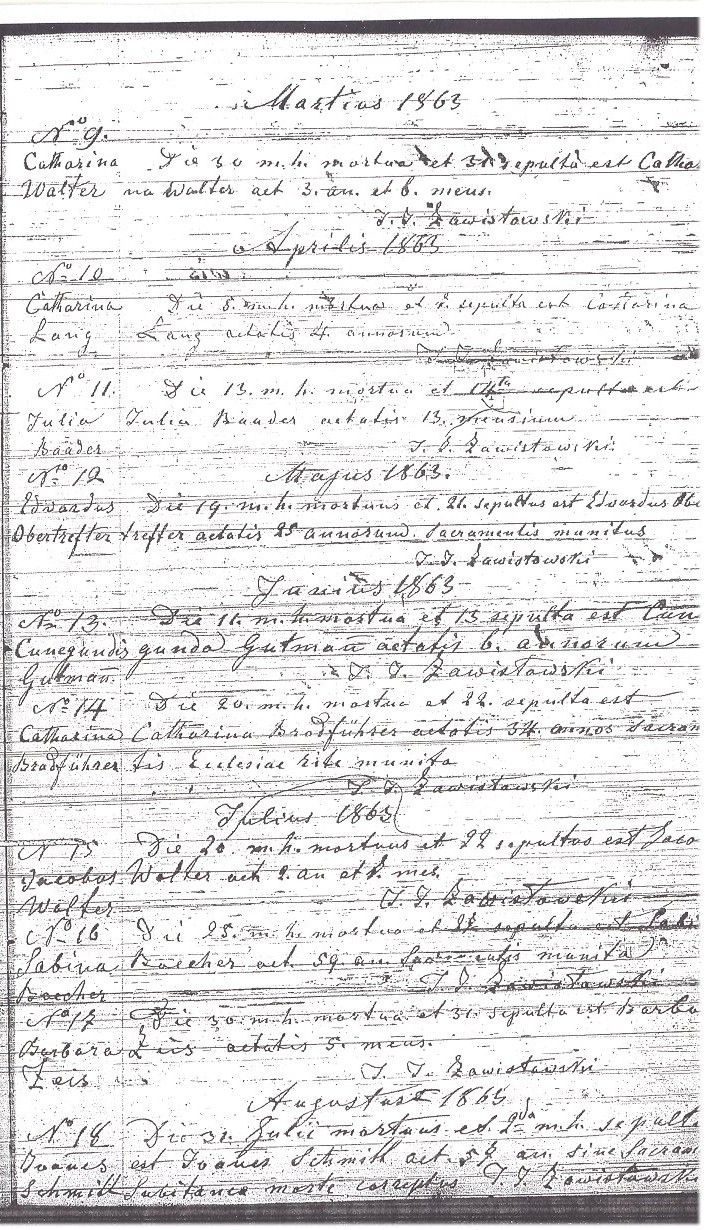 Martius 1863
No 9.
Catharina Die 30 m.h. mortua et 31 sepulta est Catha
Walter na Walter aet 3. an. et 6. mens.
J. J. Zawistowski
Aprilis 1863
No 10
Catharina Die 5. m.h. mortua et 7. sepulta est Catharina
Lang Lang aetatis 4. annorum
J. J. Zawistowski
No 11. Die 13. m.h. mortua et 14ta sepulta est
Julia Julia Baader aetatis 13. mensium
Baader J. J. Zawistowski
No 12 Majus 1863.
Edvardus Die 19. m.h. mortuus et 21. sepultus est Edvardus Obe
Obertreffer treffer aetatis 25 annorum sacramentis munitus
J. J. Zawistowski
Junius 1863
No 13. Die 11. m.h. mortua et 13 sepulta est Cun
Cunegundis gunda Gutmañ aetatis 6. annorum
Gutmañ. J. J. Zawistowski
No 14 Die 20. m.h. mortua et 22. sepulta est
Catharina Catharina Bradführer aetatis 34. annos Sacram
Bradführer tis Ecclesiae rite munita
J. J. Zawistowski
Julius 1863
No 15 Die 20. m.h. mortuus et 22 sepultus est Jaco
Jacobus Walter aet. 2. an et mes.
Walter J. J. Zawistowski
No 16 Die 25. m.h. mortua et sepulta est Sabi
Sabina Boecher aet. 59. an. Sacramentis munita
Boecher J. J. Zawistowski
No 17 Die 30. m.h. mortua et 31. sepulta est Barba
Barbara Zeis aetatis 5. mens.
Zeis J. J. Zawistowski
Augustus 1863
No 18 Die 31. Julii mortuus et 2da m.h. sepultu
Joañes est Joañes Schmitt aet. an. sine Sacram
Schmitt Subitanea morte correptus J. J. Zawistowski